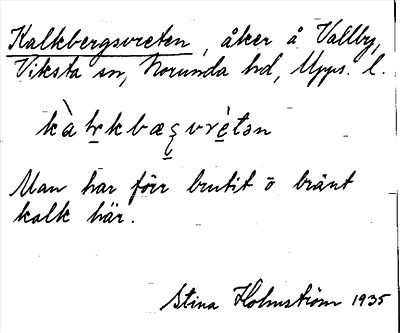 Kalkbergsvreten, åker å Vallby,
Viksta sn, Norunda hd, Upps. l.
Man har förr brutit o bränt
kalk här.
Stina Holmström 1935